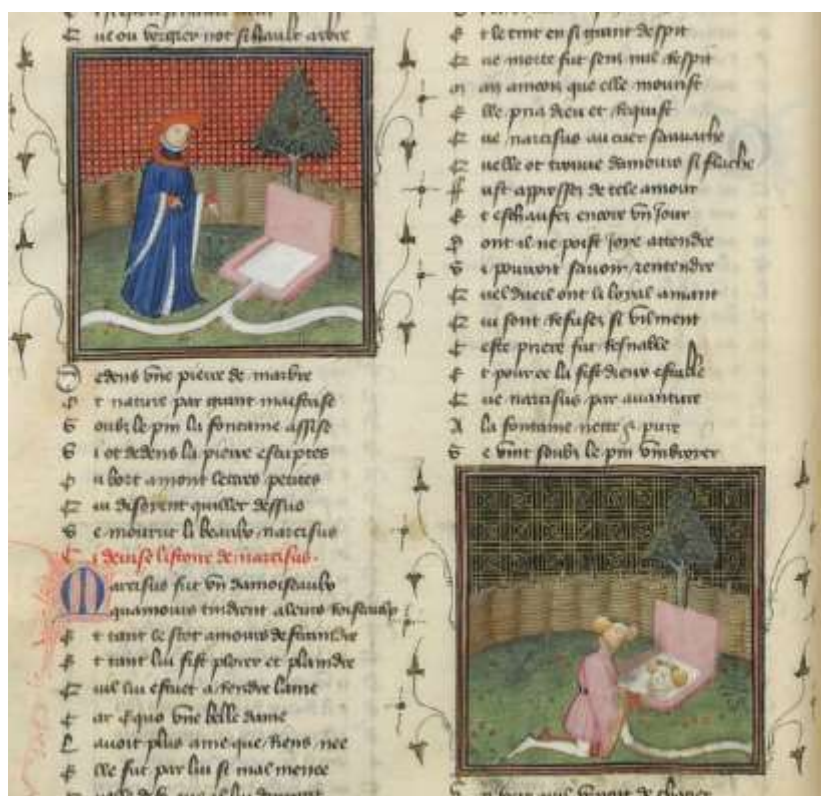 Que ou vergier not si hault arbre
Dedens une pierre de marbre
Ot nature par grant maistrise
Soubz le pin la fontaine assise
Si ot dedens la pierre escriptes
Ou bort amont lettres petites
Qui disoient quiller dessus
Se mourut li beaulx narcisus
Ci devise listoire de narcisus.
Narcisus fut un damoiseaulx
Quamours tindrent a leurs roiseaulx
Et tant le scot amours destraindre
Et tant lui fist plorer et plaindre
Quil lui estuet a rendre lame
Car equo une belle dame
Lavoit plus ame que riens nee
Elle fut par lui si mal menee
Et le tint en si grant despit
Que morte fut sens nul respit
Mais aincois que elle mourist
Elle pria dieu et requist
Que narcisus au cuer sauvache
Quelle ot trouve damours si flache
Fust appressez de tele amour
Et eschaufez encore un jour
Dont il ne poist joye attendre
Si pouvoit savoir et entendre
Quel dueil ont li loyal amant
Qui sont refusez si vilment
Ceste priere fut resnable
Et pour ce la fist dieux estable
Que narcisus par avanture
A la fontaine nette & pure
Se vint soubz le pin umbroyer
jour quil venoit de